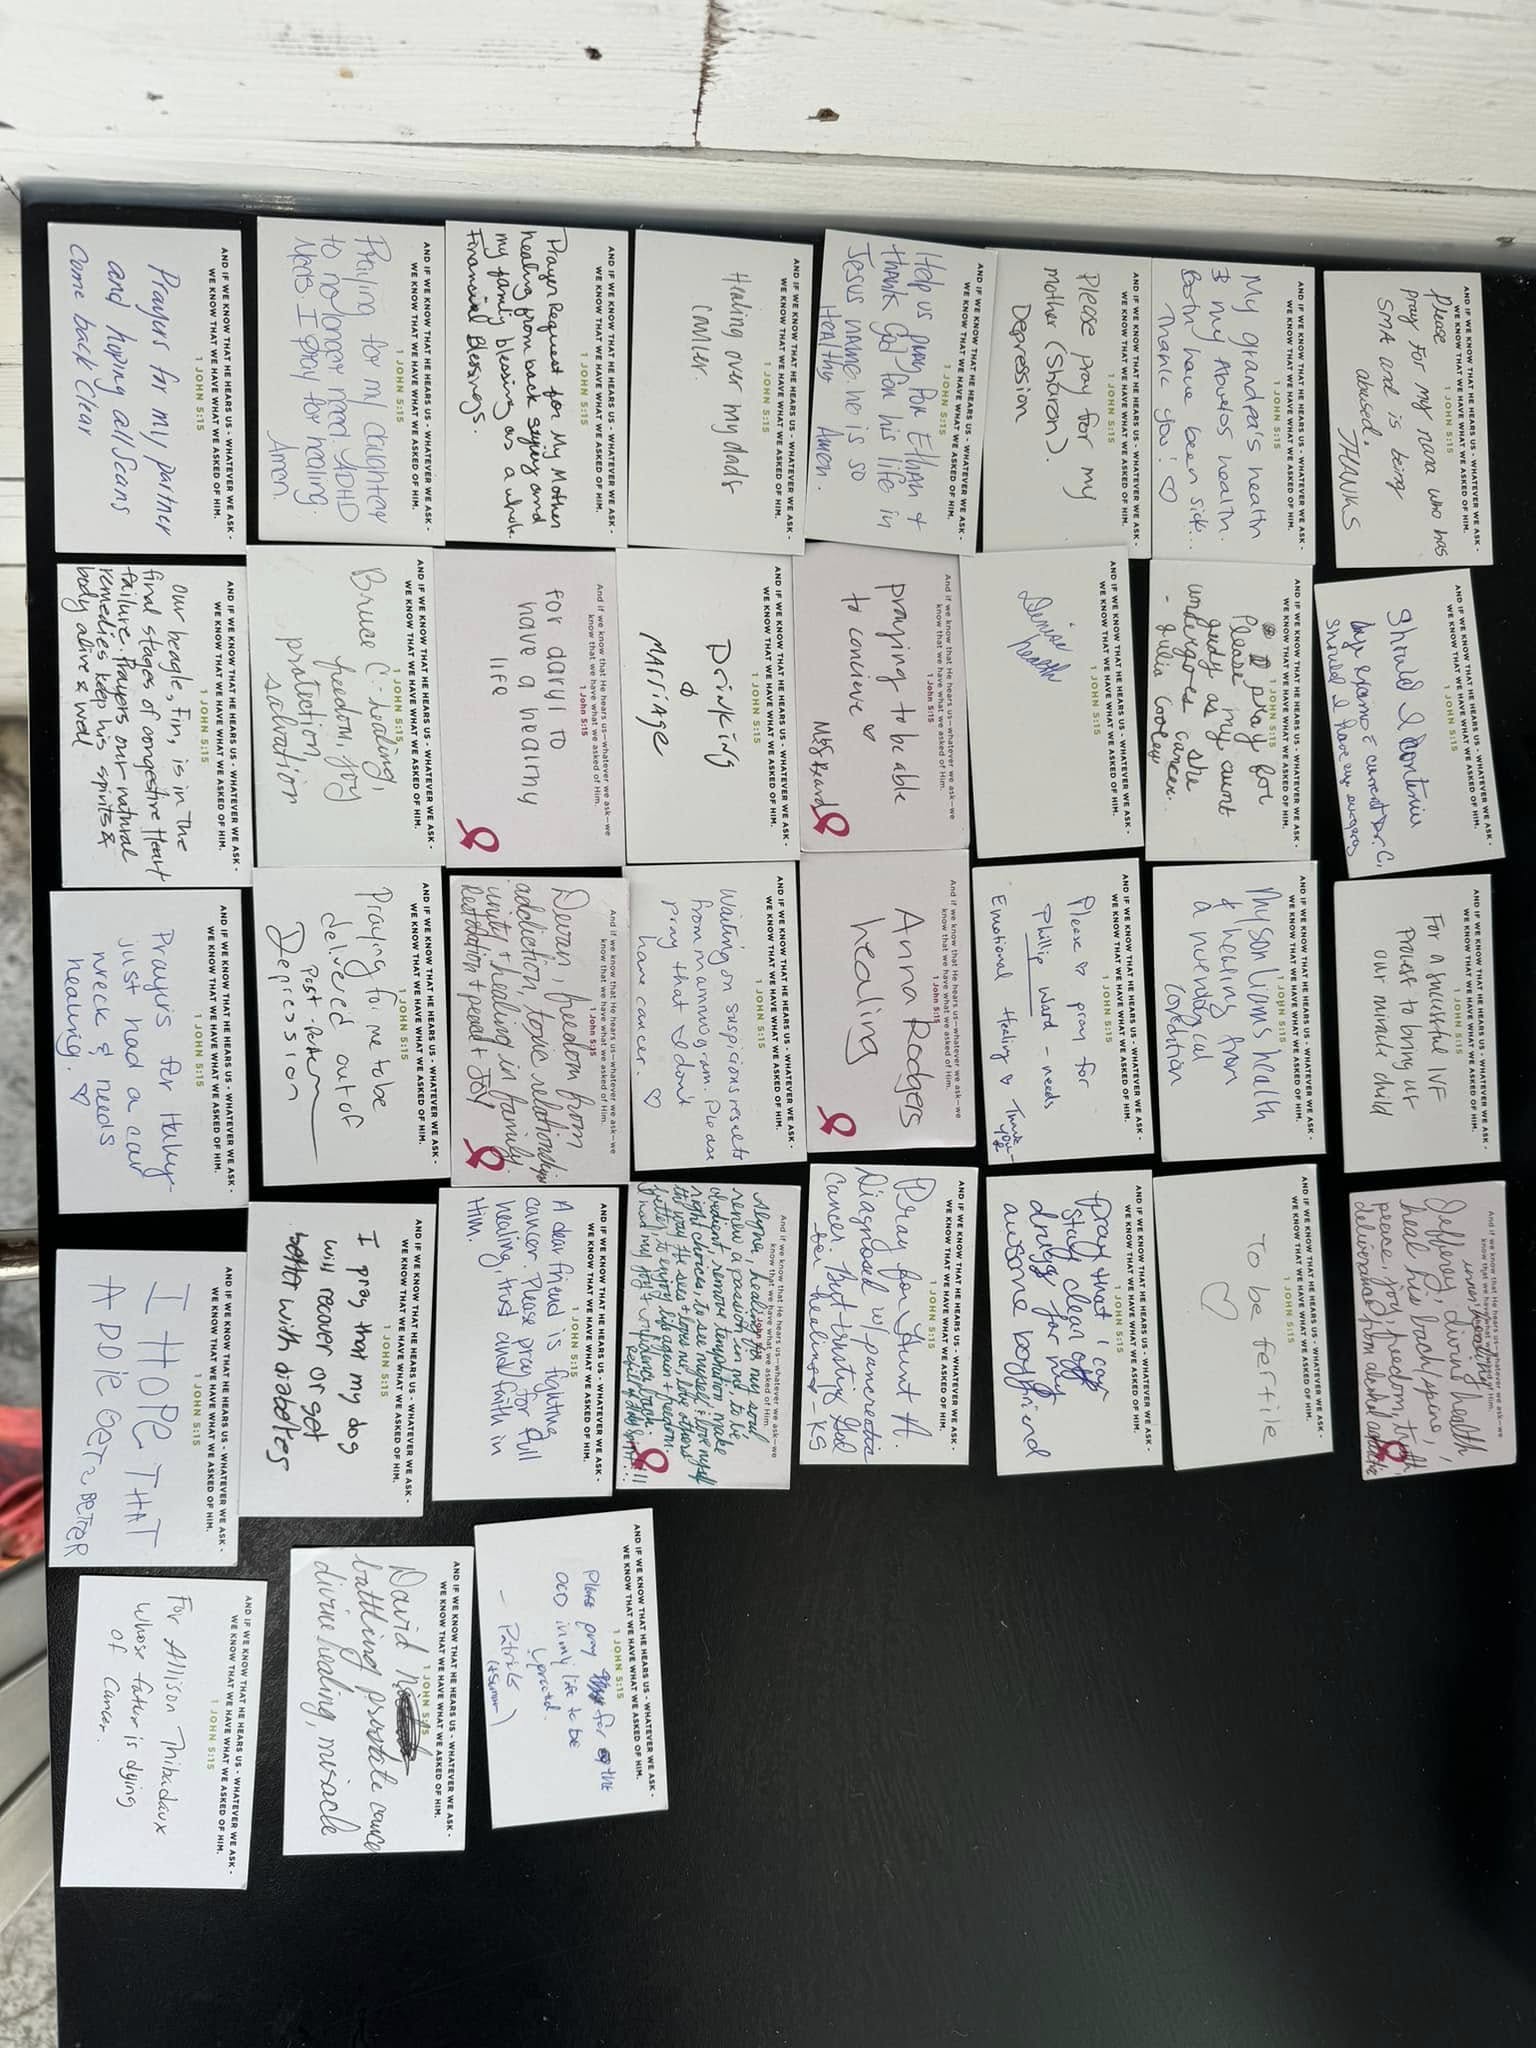 AND IF WE KNOW THAT HE HEARS US - WHATEVER WE ASK -
WE KNOW THAT WE HAVE WHAT WE ASKED OF HIM.
1 JOHN 5:15
Please
pray for my nana who has
SMA and is being
abused.
THANKS
AND IF WE KNOW THAT HE HEARS US - WHATEVER WE ASK -
WE KNOW THAT WE HAVE WHAT WE ASKED OF HIM.
1 JOHN 5:15
Should I continue
current Dr. C,
should I have surgery
AND IF WE KNOW THAT HE HEARS US - WHATEVER WE ASK -
WE KNOW THAT WE HAVE WHAT WE ASKED OF HIM.
1 JOHN 5:15
For a successful IVF
process to bring us
our miracle child
And if we know that He hears us—whatever we ask—we
know that we have what we asked of Him.
inner healing
Jefferey, divine health,
heal his back/spine,
peace, joy, freedom, truth,
deliverance from
AND IF WE KNOW THAT HE HEARS US - WHATEVER WE ASK -
WE KNOW THAT WE HAVE WHAT WE ASKED OF HIM.
1 JOHN 5:15
My grandpa's health
& my health.
Both have been sick...
Thank you! ♡
AND IF WE KNOW THAT HE HEARS US - WHATEVER WE ASK -
WE KNOW THAT WE HAVE WHAT WE ASKED OF HIM.
1 JOHN 5:15
Please pray for
my aunt
Judy as she
undergoes cancer.
- Julia Cooley
AND IF WE KNOW THAT HE HEARS US - WHATEVER WE ASK -
WE KNOW THAT WE HAVE WHAT WE ASKED OF HIM.
1 JOHN 5:15
My son Liams health
& healing from
a neurological
condition
AND IF WE KNOW THAT HE HEARS US - WHATEVER WE ASK -
WE KNOW THAT WE HAVE WHAT WE ASKED OF HIM.
1 JOHN 5:15
To be fertile
♡
AND IF WE KNOW THAT HE HEARS US - WHATEVER WE ASK -
WE KNOW THAT WE HAVE WHAT WE ASKED OF HIM.
1 JOHN 5:15
Please pray for my
mother (Sharon).
Depression
AND IF WE KNOW THAT HE HEARS US - WHATEVER WE ASK -
WE KNOW THAT WE HAVE WHAT WE ASKED OF HIM.
1 JOHN 5:15
Denise
health
AND IF WE KNOW THAT HE HEARS US - WHATEVER WE ASK -
WE KNOW THAT WE HAVE WHAT WE ASKED OF HIM.
1 JOHN 5:15
Please ♡ pray for
Phillip Ward - needs
Emotional Healing ♡ Thank
you
AND IF WE KNOW THAT HE HEARS US - WHATEVER WE ASK -
WE KNOW THAT WE HAVE WHAT WE ASKED OF HIM.
1 JOHN 5:15
pray that i can
stay clean off
drugs for my
awsome boyfriend
AND IF WE KNOW THAT HE HEARS US - WHATEVER WE ASK -
WE KNOW THAT WE HAVE WHAT WE ASKED OF HIM.
1 JOHN 5:15
Help us pray for Ethan +
thank God for his life in
Jesus name. he is so
Healthy Amen.
And if we know that He hears us—whatever we ask—we
know that we have what we asked of Him.
1 John 5:15
praying to be able
to concieve ♡
M&S Beard
And if we know that He hears us—whatever we ask—we
know that we have what we asked of Him.
1 John 5:15
Anna Rodgers
healing
AND IF WE KNOW THAT HE HEARS US - WHATEVER WE ASK -
WE KNOW THAT WE HAVE WHAT WE ASKED OF HIM.
1 JOHN 5:15
Pray for Aunt A.
Diagnosed w/ pancreatic
cancer. But trusting God
for healing - KS
AND IF WE KNOW THAT HE HEARS US - WHATEVER WE ASK -
WE KNOW THAT WE HAVE WHAT WE ASKED OF HIM.
1 JOHN 5:15
Healing over my dads
cancer.
AND IF WE KNOW THAT HE HEARS US - WHATEVER WE ASK -
WE KNOW THAT WE HAVE WHAT WE ASKED OF HIM.
1 JOHN 5:15
Drinking
&
Marriage
AND IF WE KNOW THAT HE HEARS US - WHATEVER WE ASK -
WE KNOW THAT WE HAVE WHAT WE ASKED OF HIM.
1 JOHN 5:15
Waiting on suspicions results
from mammogram. Please
pray that I don't
have cancer. ♡
And if we know that He hears us—whatever we ask—we
know that we have what we asked of Him.
healing for my soul
renew a passion in me, to be
obedient, remove temptation, make
right choices, to see myself + love myself
the way He sees + loves me, love others
better, to enjoy life again + freedom.
find my joy + back.
Refill of Holy Spirit!!!
AND IF WE KNOW THAT HE HEARS US - WHATEVER WE ASK -
WE KNOW THAT WE HAVE WHAT WE ASKED OF HIM.
1 JOHN 5:15
Prayer Request for My Mother
healing from back surgery and
my family blessing as a whole.
Financial Blessings.
And if we know that He hears us—whatever we ask—we
know that we have what we asked of Him.
1 John 5:15
for daryl to
have a healthy
life
And if we know that He hears us—whatever we ask—we
know that we have what we asked of Him.
1 John 5:15
Devan, freedom from
addiction, toxic relationships
unity + healing in family,
Restoration + peace + JOY
AND IF WE KNOW THAT HE HEARS US - WHATEVER WE ASK -
WE KNOW THAT WE HAVE WHAT WE ASKED OF HIM.
1 JOHN 5:15
A dear friend is fighting
cancer. Please pray for full
healing, trust and faith in
Him.
AND IF WE KNOW THAT HE HEARS US - WHATEVER WE ASK -
WE KNOW THAT WE HAVE WHAT WE ASKED OF HIM.
1 JOHN 5:15
Please pray for the
OCD in my life to be
- Patrick
AND IF WE KNOW THAT HE HEARS US - WHATEVER WE ASK -
WE KNOW THAT WE HAVE WHAT WE ASKED OF HIM.
1 JOHN 5:15
for my daughter
to no longer need ADHD
Meds. I pray for healing.
Amen
AND IF WE KNOW THAT HE HEARS US - WHATEVER WE ASK -
WE KNOW THAT WE HAVE WHAT WE ASKED OF HIM.
1 JOHN 5:15
Bruce C - healing,
freedom, joy
protection
salvation
AND IF WE KNOW THAT HE HEARS US - WHATEVER WE ASK -
WE KNOW THAT WE HAVE WHAT WE ASKED OF HIM.
1 JOHN 5:15
Praying for me to be
delivered out of
Post-Partem
Depression
AND IF WE KNOW THAT HE HEARS US - WHATEVER WE ASK -
WE KNOW THAT WE HAVE WHAT WE ASKED OF HIM.
1 JOHN 5:15
I pray that my dog
will recover or get
better with diabetes
AND IF WE KNOW THAT HE HEARS US - WHATEVER WE ASK -
WE KNOW THAT WE HAVE WHAT WE ASKED OF HIM.
1 JOHN 5:15
David
battling prostate cancer
divine healing, miracle
AND IF WE KNOW THAT HE HEARS US - WHATEVER WE ASK -
WE KNOW THAT WE HAVE WHAT WE ASKED OF HIM.
1 JOHN 5:15
Prayers for my partner
and hoping all scans
come back clear
AND IF WE KNOW THAT HE HEARS US - WHATEVER WE ASK -
WE KNOW THAT WE HAVE WHAT WE ASKED OF HIM.
1 JOHN 5:15
Our beagle, Fin, is in the
final stages of congestive Heart
failure. Prayers our natural
remedies keep his spirits &
body alive & well
AND IF WE KNOW THAT HE HEARS US - WHATEVER WE ASK -
WE KNOW THAT WE HAVE WHAT WE ASKED OF HIM.
1 JOHN 5:15
Prayers for Haley-
just had a car
wreck & needs
healing. ♡
AND IF WE KNOW THAT HE HEARS US - WHATEVER WE ASK -
WE KNOW THAT WE HAVE WHAT WE ASKED OF HIM.
1 JOHN 5:15
I HOPE THAT
ADDIE GETS BETTER
AND IF WE KNOW THAT HE HEARS US - WHATEVER WE ASK -
WE KNOW THAT WE HAVE WHAT WE ASKED OF HIM.
1 JOHN 5:15
For Allison Thibadaux
whose father is dying
of cancer.